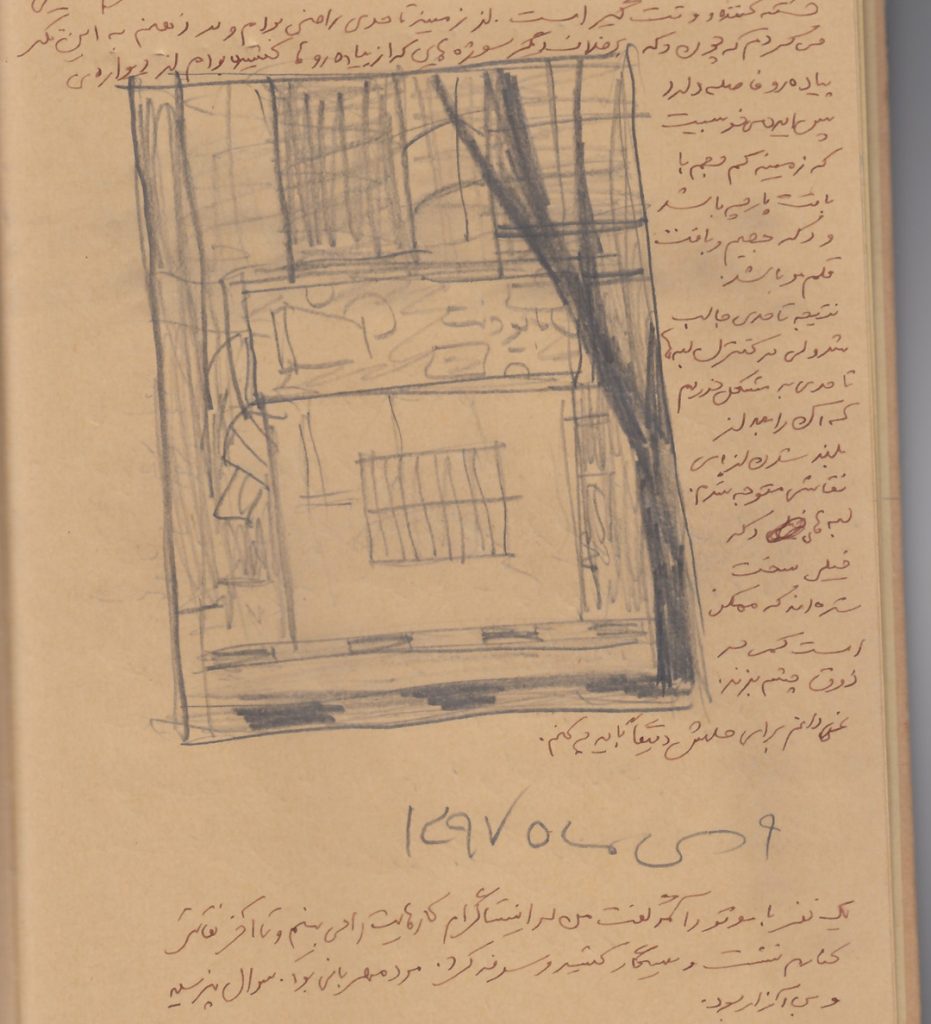 خسته کننده و وقت گیر است. از زمینه تا حدی راضی بودم و در ذهنم به این فکر
می کردم که چون دکه برخلاف دیگر سوژه هایی که از پیاده رو ها کشیده بودم از دیواره ی
پیاده رو فاصله دارد
پس ایده ی خوبیست
که زمینه کم حجم با
بافت پارچه باشد
و دکه حجیم و بافت
قلم مو باشد.
نتیجه تا حدی جالب
شد ولی در کنترل لبه ها
تا حدی به مشکل خوردیم
که آن را بعد از
بلند شدن از پای
نقاشی متوجه شدم.
لبه های دکه
خیلی سخت
شده اند که ممکن
است کمی در
ذوق چشم بزند.
نمی دانم برای حلش دقیقاً باید چه کنم.
۹ دی ماه ۱۳۹۷
یک نفر با موتور آمد گفت من در اینستاگرام کارهایت را می بینم و تا آخر نقاشی
کنارم نشست و سیگار کشید و سرفه کرد. مرد مهربانی بود. سوال پرسید
و بی آزار بود.